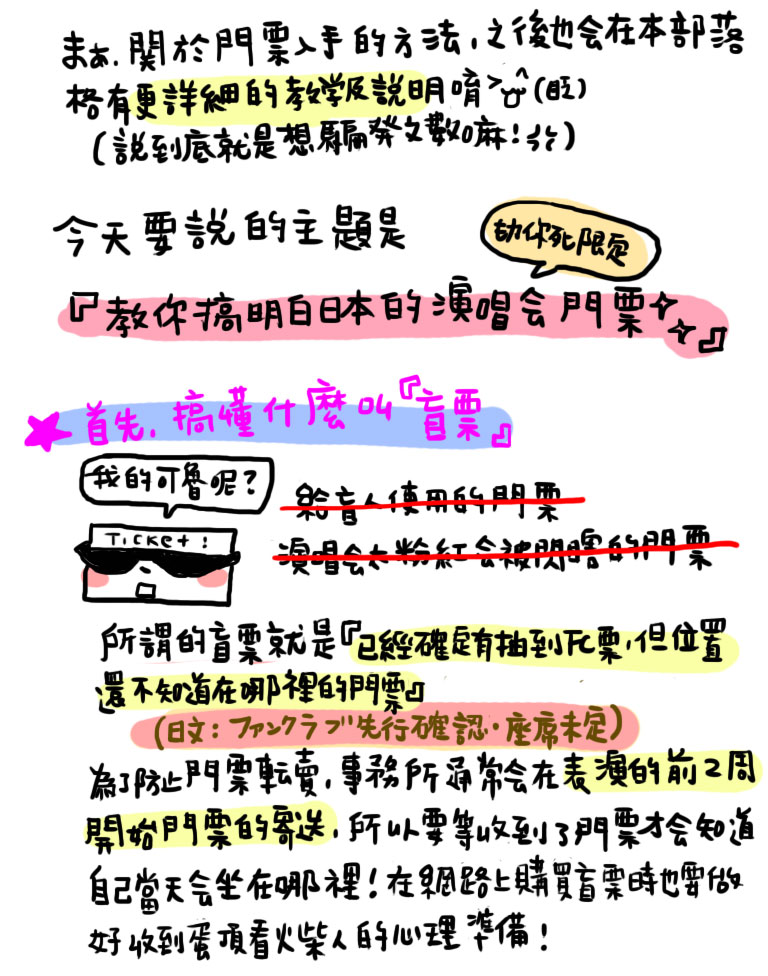 まぁ、關於門票入手的方法，之後也会在本部落
格有更詳細的教学及説明唷>
(説到底就是想騙発文數嘛！
今天要説的主題是
劫你死限定
『教你搞明白日本的演唱会門票✧✧』
★首先，搞懂什麼叫『盲票』
我的可魯呢？
給盲人使用的門票
TICKET!
演唱会太粉紅会被閃瞎的門票
所謂的盲票就是『已經確定有抽到FC票，但位置
還不知道在哪裡的門票』
(日文：ファンクラブ先行確認・座席未定)
為了防止門票転売，事務所通常会在表演的前2周
開始門票的寄送，所以要等收到了門票才会知道
自己當天会坐在哪裡！在網路上購買盲票時也要做
好收到蛋頂看火柴人的心理準備！